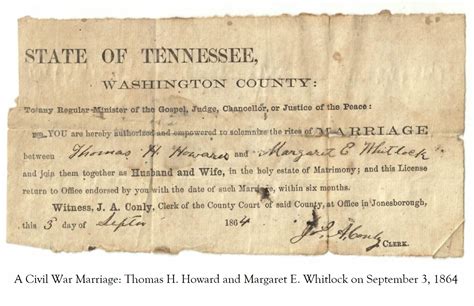 STATE OF TENNESSEE,
WASHINGTON COUNTY:
To any Regular Minister of the Gospel, Judge, Chancellor, or Justice of the Peace:
YOU are hereby authorized and empowered to solemnize the rites of MARRIAGE
between Thomas H Howard and Margaret E Whitlock
and join them together as Husband and Wife, in the holy estate of Matrimony; and this License
return to Office endorsed by you with the date of such Marriage, within six months.
Witness, J. A. Conly, Clerk of the County Court of said County, at Office in Jonesborough,
this 3 day of Septr 1864
A. Conly
CLERK.
A Civil War Marriage: Thomas H. Howard and Margaret E. Whitlock on September 3, 1864